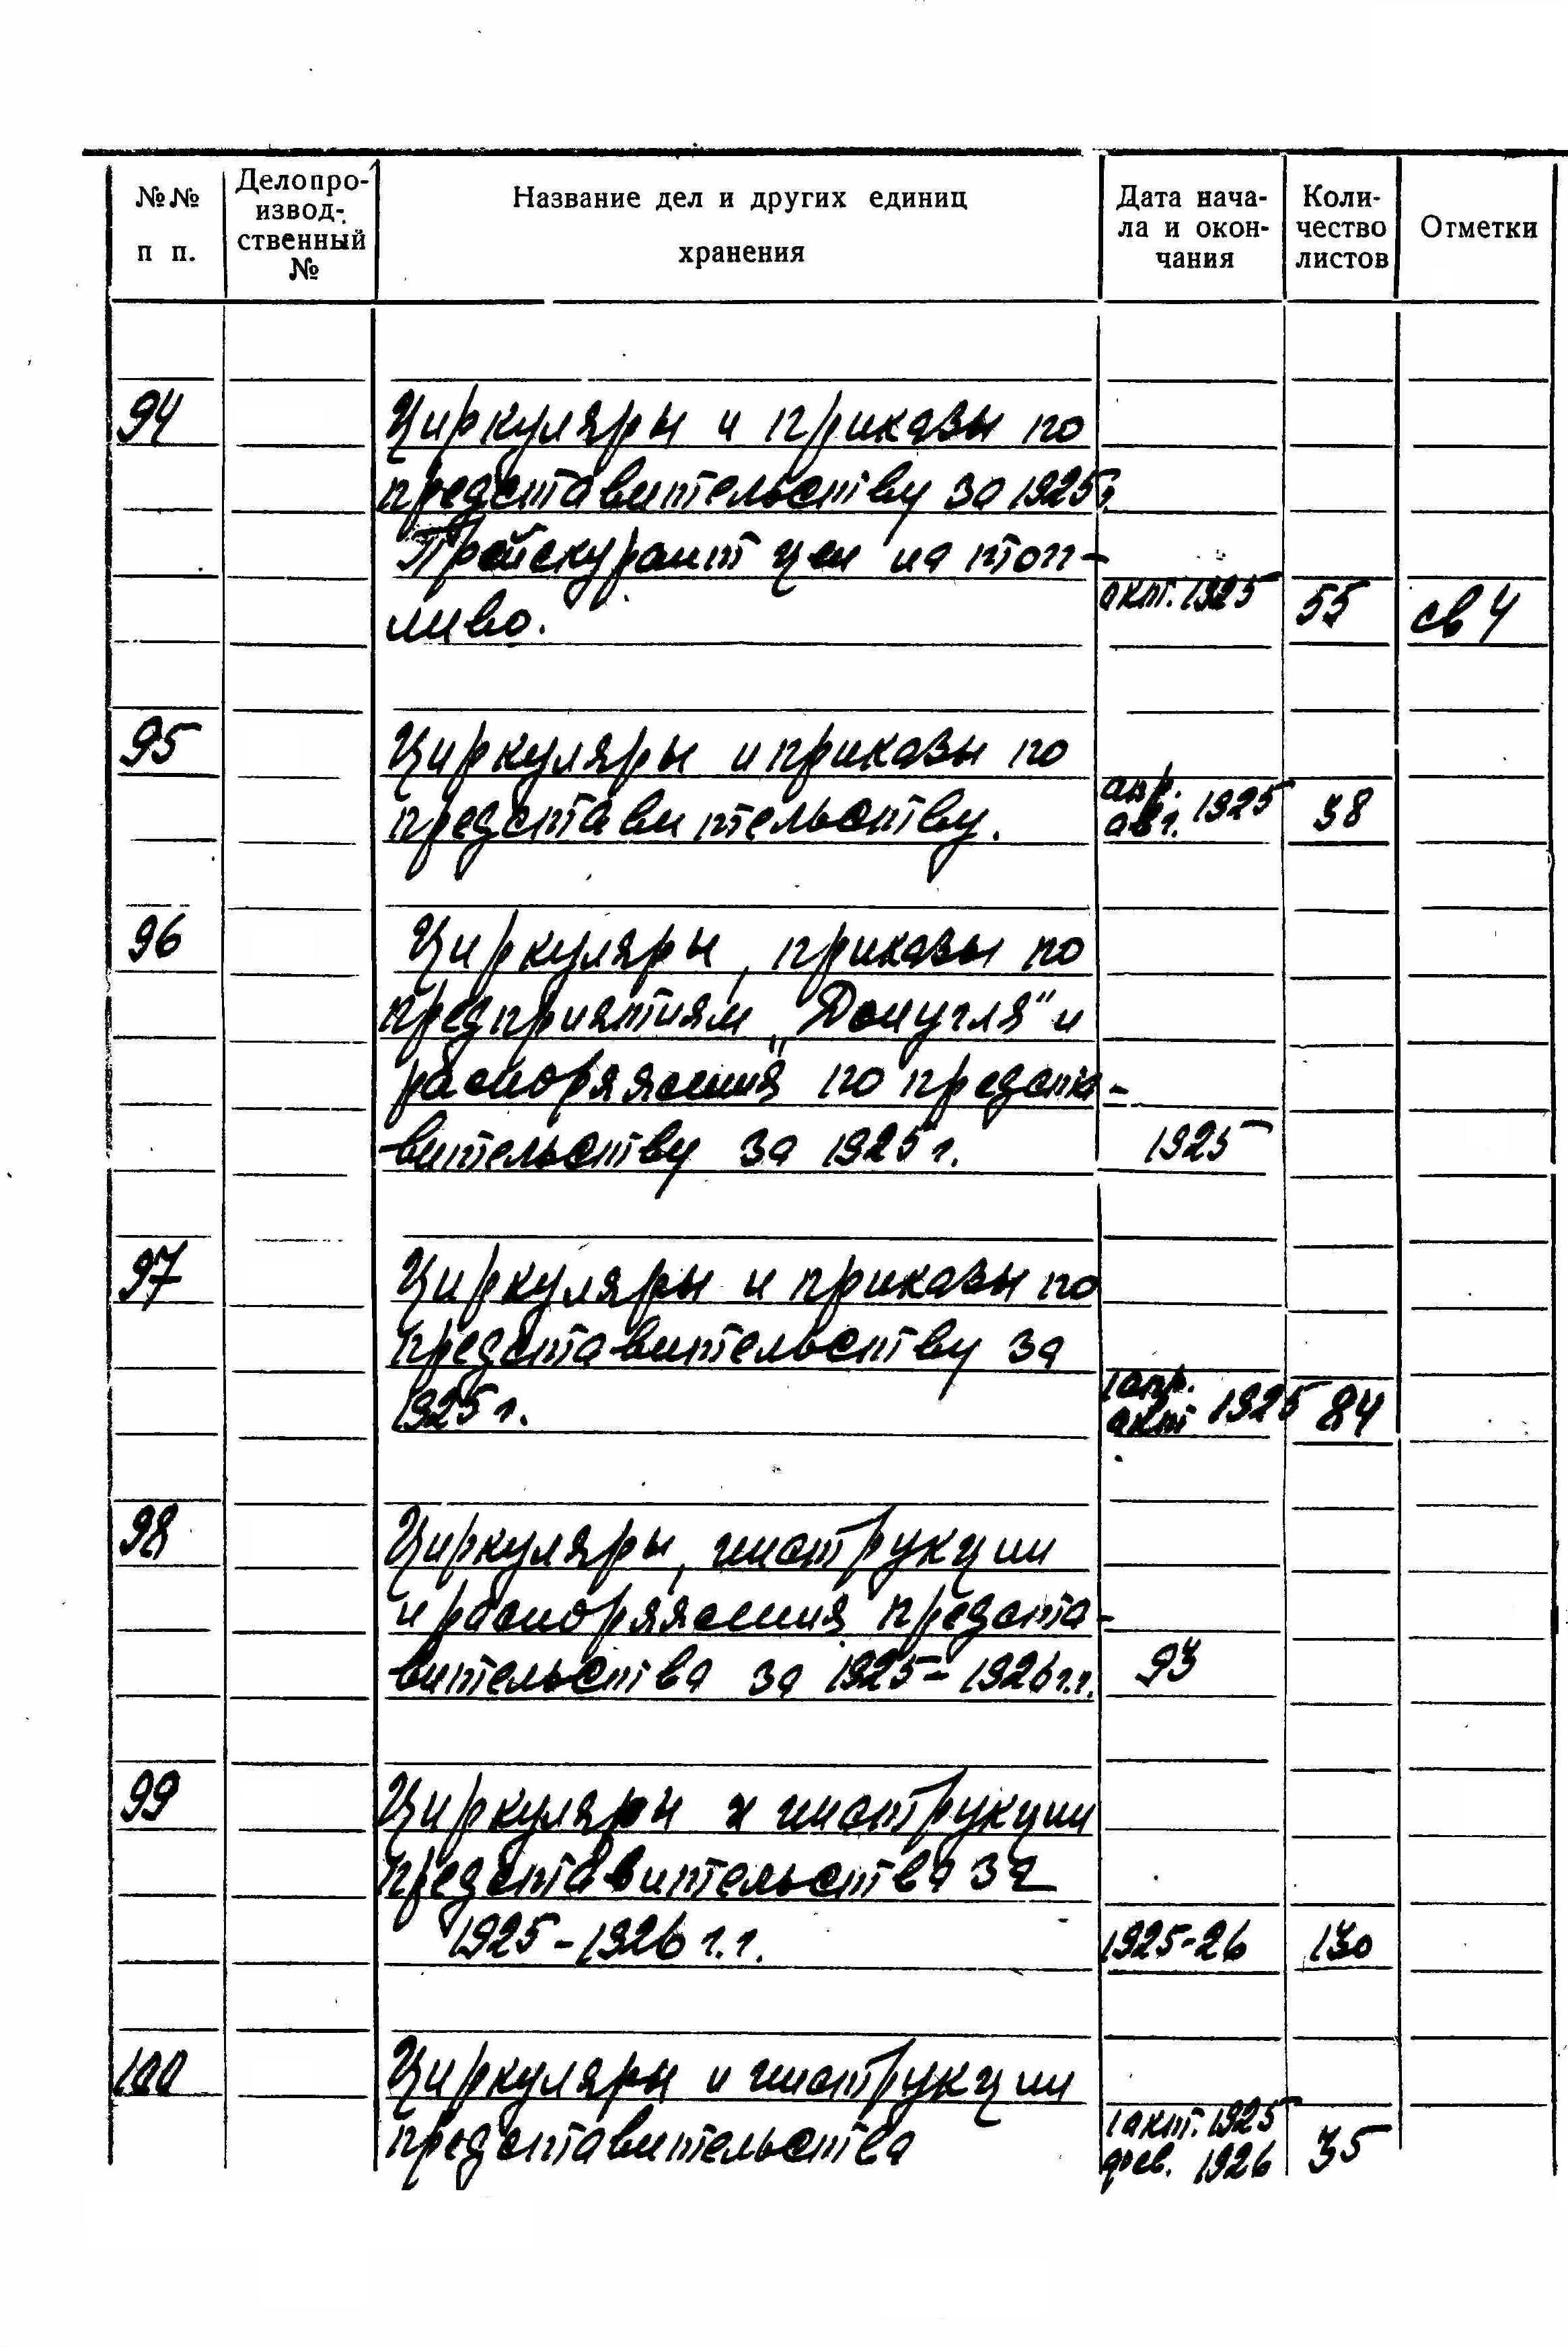 №№ п п.
Делопро-
извод-
ственный
№
Название дел и других единиц
хранения
Дата нача-
ла и окон-
чания
Коли-
чество
листов
Отметки
94 Циркуляры и приказы по
представительству за 1925 г.
Прейскурант цен на топ-
ливо. окт. 1925 55 св 4
95 Циркуляры и приказы по
представительству. апр. авг. 1925 38
96 Циркуляры, приказы по
предприятиям „Донугля" и
распоряжения по предста-
вительству за 1925 г. 1925
97 Циркуляры и приказы по
представительству за
1925 г. апр. окт 1925 84
98 Циркуляры, инструкции
и распоряжения предста-
вительства за 1925-1926 г.г. 93
99 Циркуляры и инструкции
представительства за
1925-1926 г.г. 1925-26 130
100 Циркуляры и инструкции
представительства 1 окт. 1925 фев. 1926 35